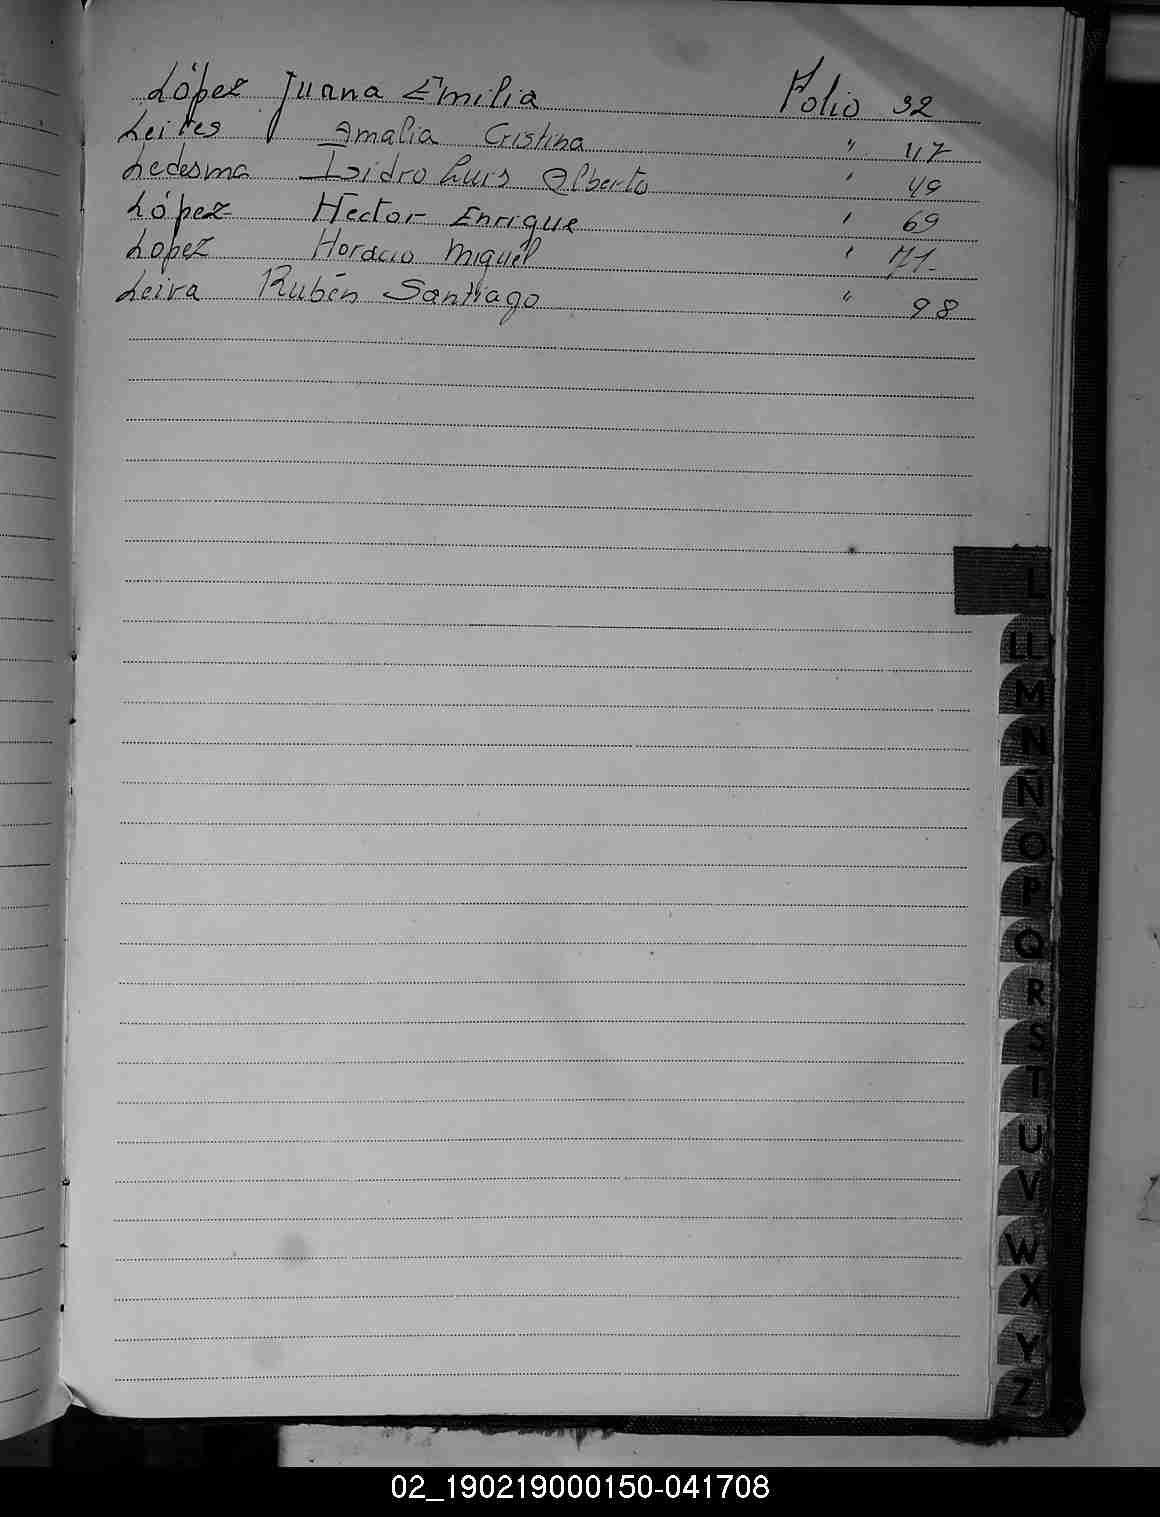 López Juana Emilia Folio 32
Leites Amalia Cristina " 47
Ledesma Isidro Luis Alberto " 49
López Hector Enrique " 69
Lopez Horacio Miguel " 71-
Leiva Rubén Santiago " 98
L
LL
M
N
Ñ
O
P
Q
R
S
T
U
V
W
X
Y
Z
02_190219000150-041708